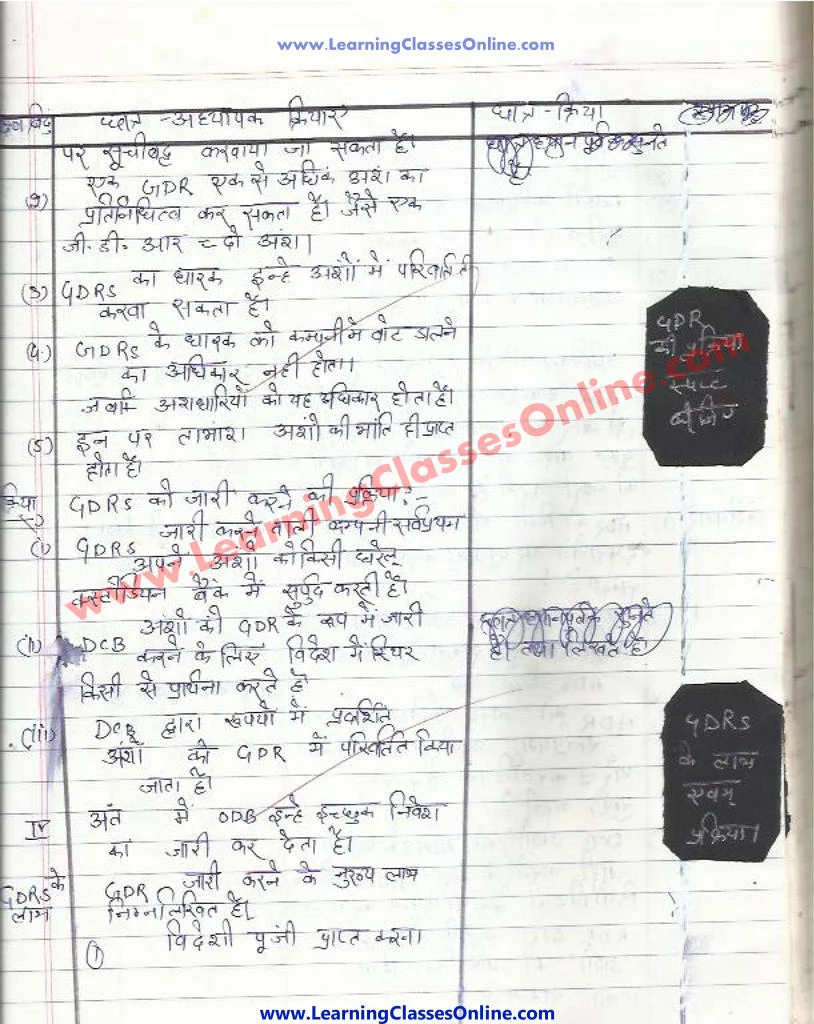 www.LearningClassesOnline.com
छात्र-अध्यापक क्रियाएं
छात्र-क्रिया
पर सूचीबद्ध करवाया जा सकता है।
(2) एक GDR एक से अधिक अंशों का
प्रतिनिधित्व कर सकता है। जैसे एक
जी. डी. आर = दो अंश।
(3) GDRs का धारक इन्हे अंशों में परिवर्तित
करवा सकता है।
(4) GDRs के धारक को कम्पनी में वोट डालने
का अधिकार नहीं होता।
जबकि अंशधारियों को यह अधिकार होता है।
(5) इन पर लाभांश अंशों की भांति ही प्राप्त
होता है।
GDR
की प्रक्रिया
स्पष्ट
कीजिए
क्रिया GDRs को जारी करने की प्रक्रिया:-
(i) GDRs जारी करने वाली कम्पनी सर्वप्रथम
अपने अंशों को किसी घरेलू
कस्टोडियन बैंक में सुर्पुद करती है।
(ii) DCB अंशों को GDR के रूप में जारी
करने के लिए विदेश में स्थिर
किसी से प्रार्थना करते है
छात्र ध्यानपूर्वक सुनते
है। तथा लिखते है
(iii) DCB द्वारा रूपयों में प्रदर्शित
अंशों को GDR में परिवर्तित किया
जाता है।
IV अंत में ODB इन्हे इच्छुक निवेश
कों जारी कर देता है।
GDRs
के लाभ
एवम्
प्रक्रिया।
GDRs के लाभ
GDR जारी करने के मुख्य लाभ
निम्नलिखित है।
① विदेशी पूंजी प्राप्त करना
www.LearningClassesOnline.com
www.LearningClassesOnline.com